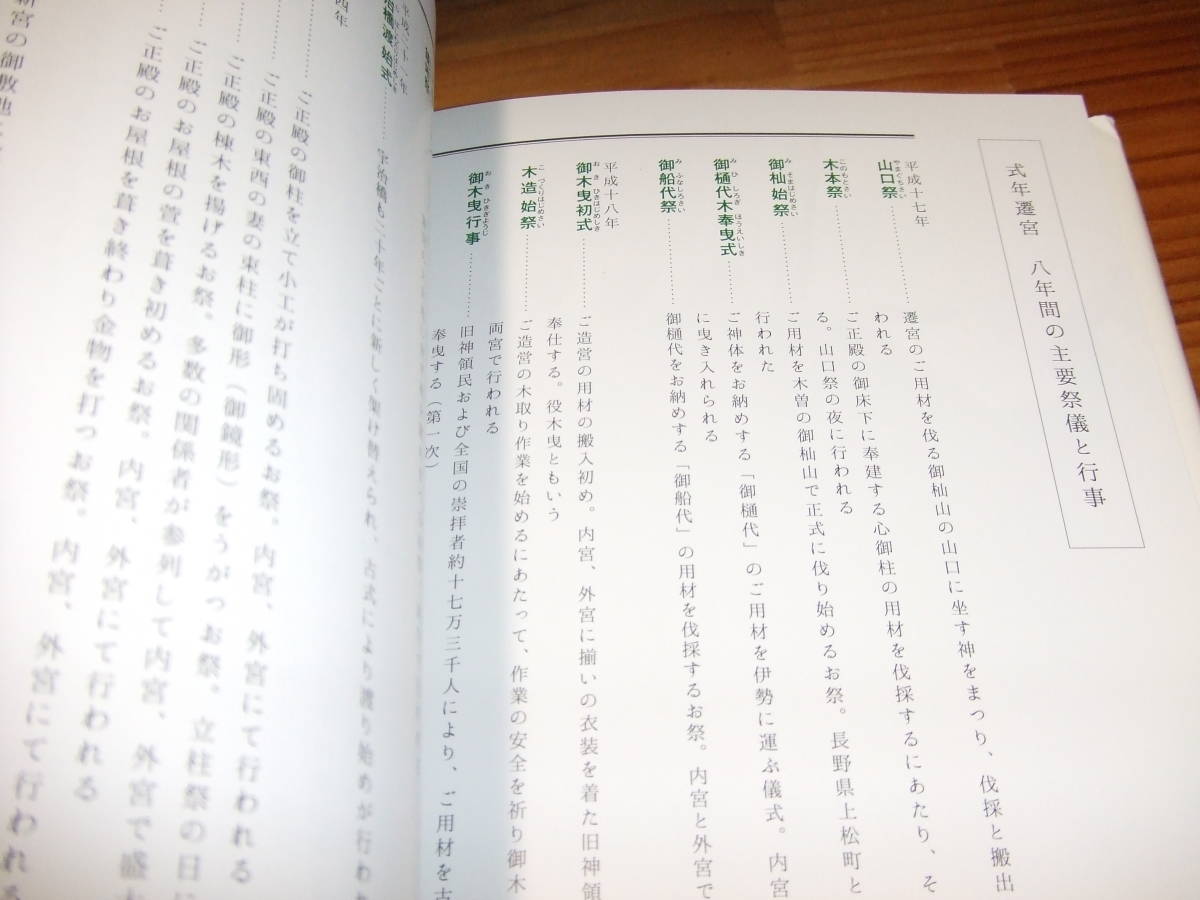 式年遷宮　八年間の主要祭儀と行事
平成十七年
山口祭 やまぐちさい ………… 遷宮のご用材を伐る御杣山の山口に坐す神をまつり、伐採と搬出
われる
木本祭 このもとさい ………… ご正殿の御床下に奉建する心御柱の用材を伐採するにあたり、そ
る。山口祭の夜に行われる
御杣始祭 みそまはじめさい ………… ご用材を木曽の御杣山で正式に伐り始めるお祭。長野県上松町と
行われた
御樋代木奉曳式 みひしろぎほうえいしき ………… ご神体をお納めする「御樋代」のご用材を伊勢に運ぶ儀式。内宮
に曳き入れられる
御船代祭 みふなしろさい ………… 御樋代をお納めする「御船代」の用材を伐採するお祭。内宮と外宮で
平成十八年
御木曳初式 おきひきはじめしき ………… ご造営の用材の搬入初め。内宮、外宮に揃いの衣装を着た旧神領
奉仕する。役木曳ともいう
木造始祭 こづくりはじめさい ………… ご造営の木取り作業を始めるにあたって、作業の安全を祈り御木
両宮で行われる
御木曳行事 おきひきぎょうじ ………… 旧神領民および全国の崇拝者約十七万三千人により、ご用材を古
奉曳する（第一次）
平成二十一年
渡始式 ………… 宇治橋も二十年ごとに新しく架け替えられ、古式により渡り始めが行わ
四年
………… ご正殿の御柱を立て小工が打ち固めるお祭。内宮、外宮にて行われる
………… ご正殿の東西の妻の束柱に御形（御鏡形）をうがつお祭。立柱祭の日に
………… ご正殿の棟木を揚げるお祭。多数の関係者が参列して内宮、外宮で盛大
………… ご正殿のお屋根の萱を葺き初めるお祭。内宮、外宮にて行われる
………… ご正殿のお屋根を葺き終わり金物を打つお祭。内宮、外宮にて行われる
新宮の御敷地